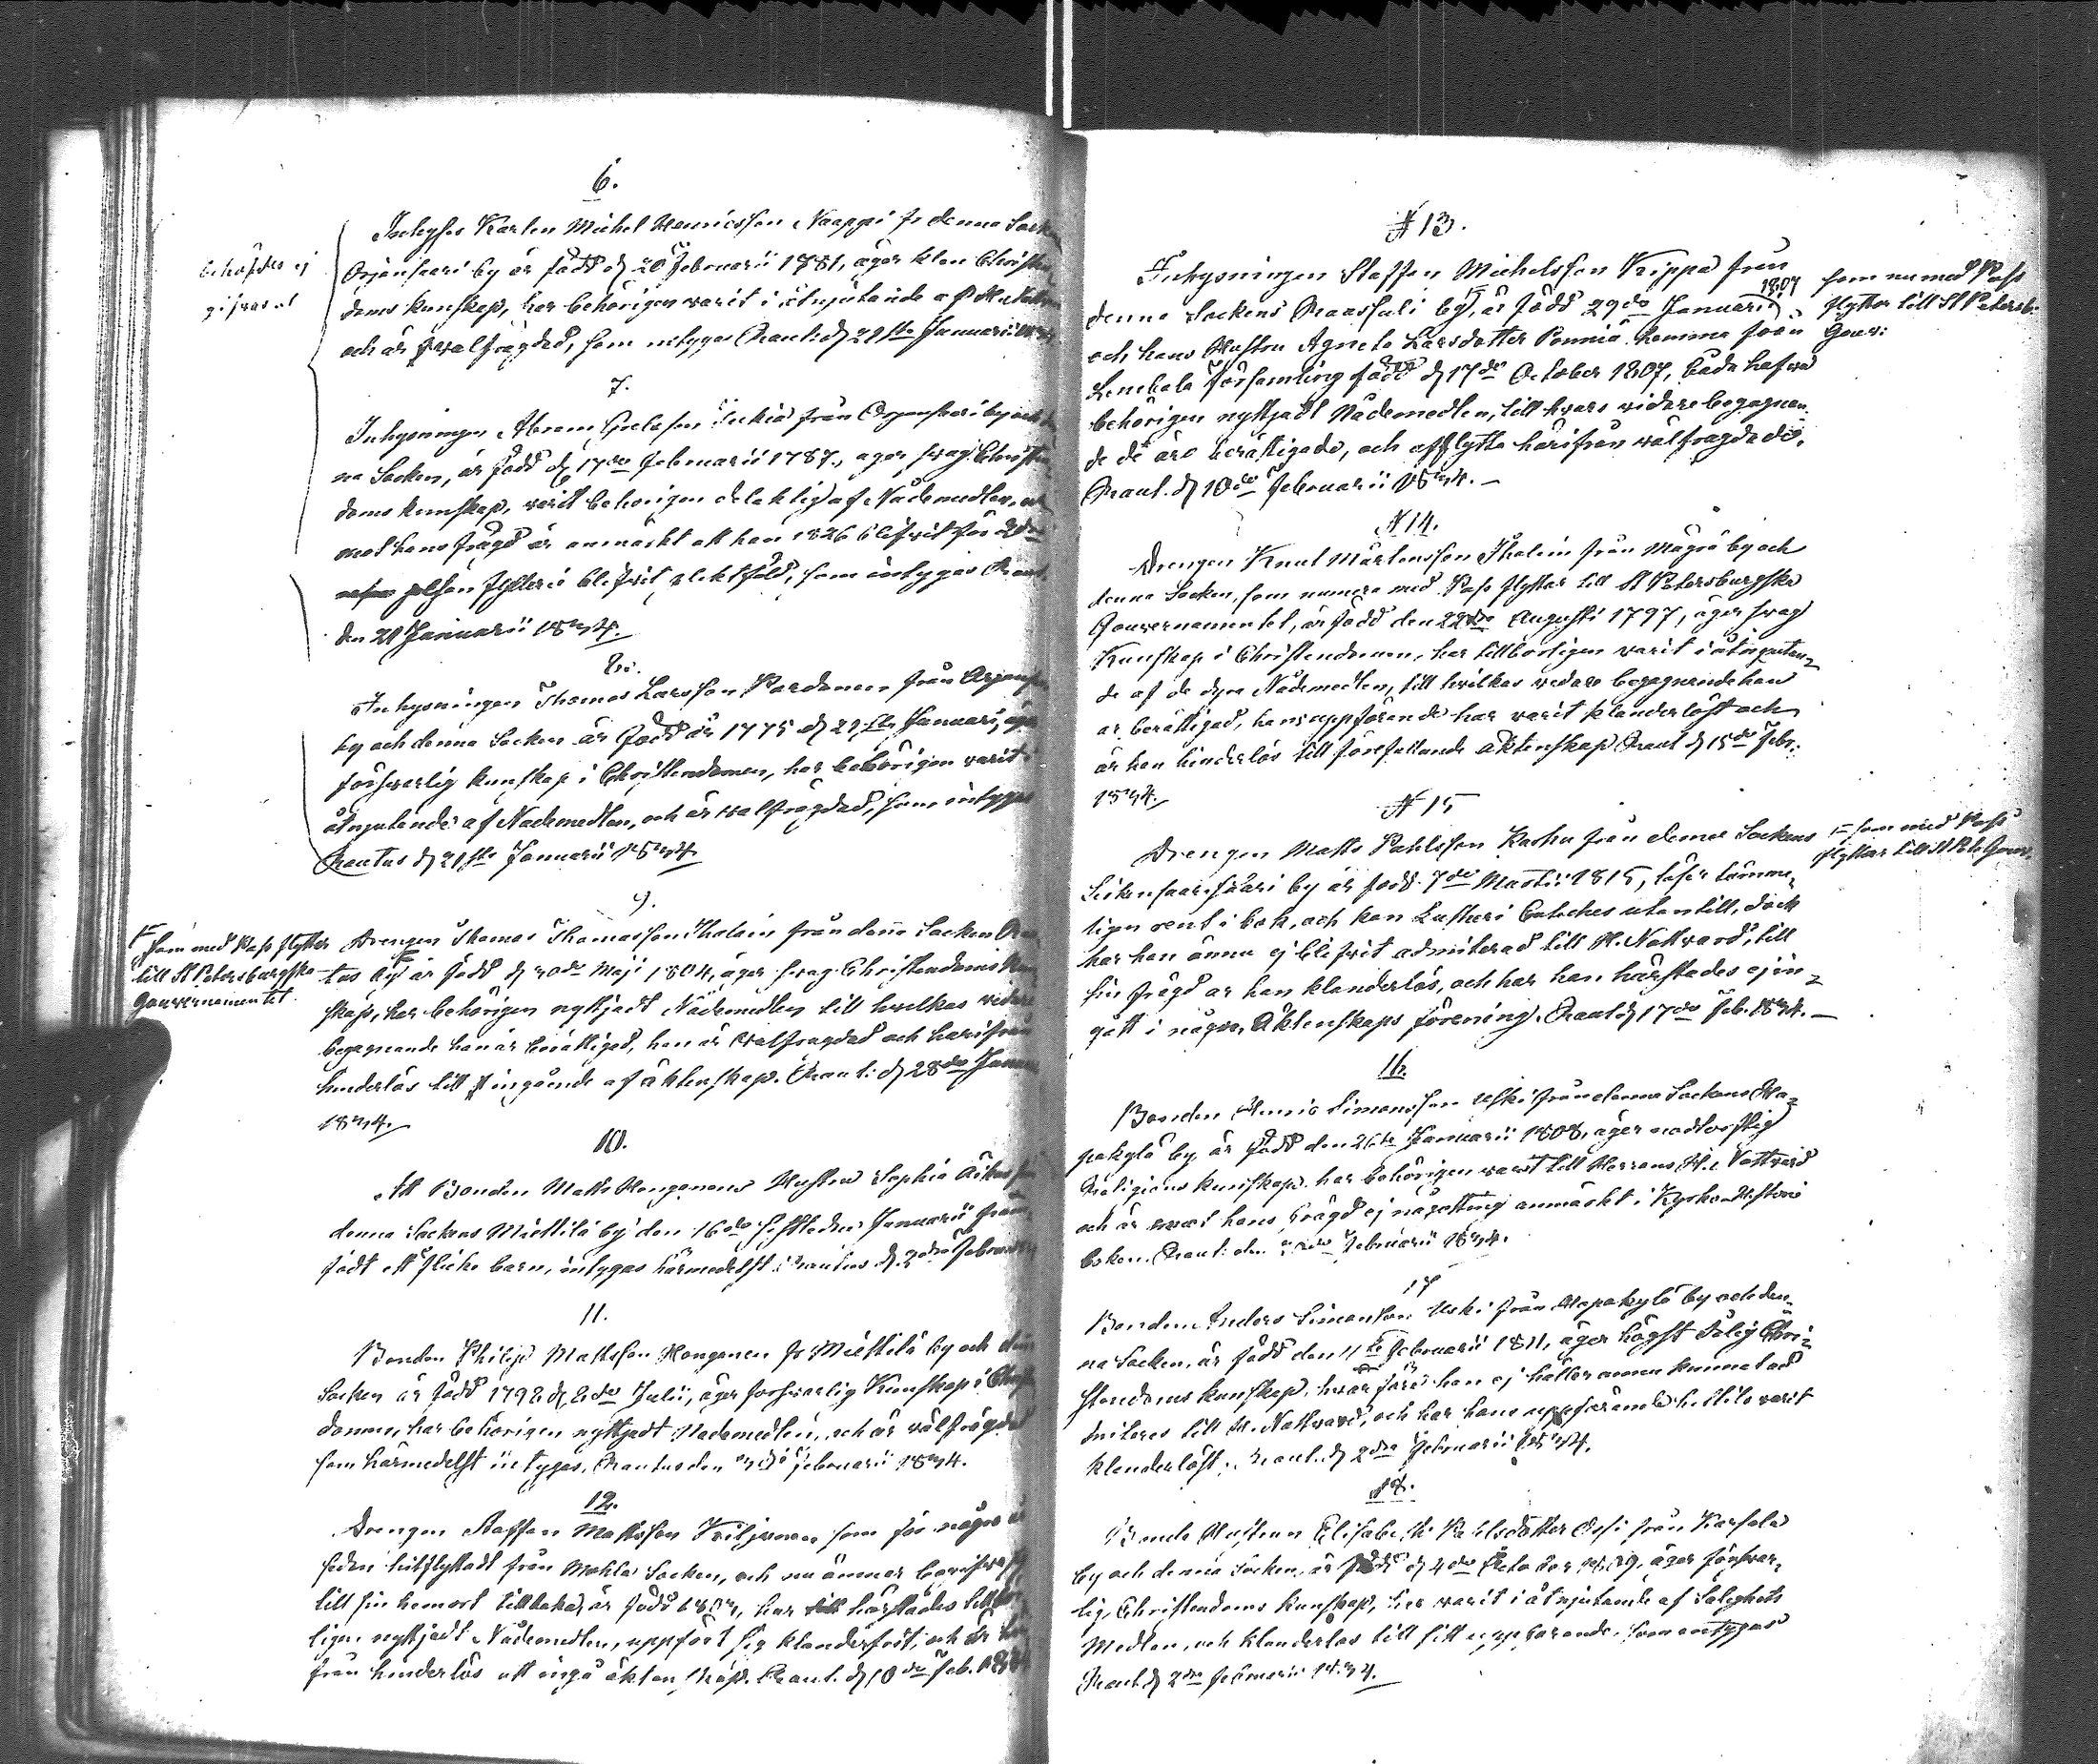 6.
Inhyses Karlen Michel Henricsson Naappi fr denna Sock
behöfdes ej
Orjansaari by är född d 20 Februarii 1781, äger klen Christen
gifvas ut
doms kunskap, har behörigen varit i åtnjutande af
och är wälfrägdad, som intygas Raut: d 21sta Januarii
7.
Inhysningen Abram från Orjansaari by och
na Socken, är född d 17de Februarii 1787, äger svag Christen
doms kunskap, varit behörigen delaktig af Nådemedlen,
mot hans frägd är anmärkt att han 1826 blifvit för
blifvit som intygas Raut.
den 21 Januarii 1834.
8.
Inhysningen Thomas Larsson Pardanen från Orjansa
by och denna Socken är född år 1775 d 29 Januari, äger
försvarlig kunskap i Christendomen, har behörigen varit i
åtnjutande af Nådemedlen, och är wälfrägdad, som intygas
Rautus d 21sta Januarii 1834
9.
Drengen Thomas Thomasson Ihalain från denna Socken Rau
som med Pass flytter
till St Petersburgska
Gouvernementet.
tus by är född d 30de Maji 1804, äger svag Christendoms Kun
skap, har behörigen nyttjadt Nådemedlen till hvilkas vidare
begagnande han är berättigad, han är wälfrägdad och härifrån
hinderlös till ingående af äktenskap. Raut: d 28de Januarii
1834.
10.
Att Bonden Matts Hongonens Hustru Sophia
denna Sockens Miettilä by den 16de sistledne Januarii fram
födt ett flicke barn, intygas härmedelst Rautus d 3dje Februarii
11.
Bonden Philip Mattsson Hongonen fr Miettilä by och denna
Socken är född 1792 d 2de Julii, äger försvarlig Kunskap i Christ
domen, har behörigen nyttjadt Nådemedlen, och är wälfrägdad
som härmedelst intygas. Rautus den Februarii 1834.
12.
Drengen Staffan Mattsson som för några år
sedan hitflyttadt från Mohla Socken, och nu ämnar
till sin hemort tillbaka, är född 1803, har till härstädes tillbör
ligen nyttjadt Nådemedlen, uppfört sig klanderfritt, och är här
från hinderlös att ingå äktenskap. Raut. d 10de Feb. 1834
N 13.
Inhysningen Staffan Michelsson Kippa från
som nu med Pass
flyttar till St Petersb:
Gouv:
denna Sockens Raasuli by, är född 29de Januarii 1807
och hans Hustru Agneta Larsdotter Ponniä komma från
Lembala församling född d 17de October 1807, båda hafva
behörigen nyttjadt Nådemedlen, till hvars vidare begagnan
de de äro berättigade, och afflytta härifrån wälfrägdade.
Raut. d 10de Februarii 1834.
N 14.
Drengen Knut Mårtensson Ihalain från Mägrä by och
denna Socken, som numera med Pass flyttar till St Petersburgska
Gouvernementet, är född den 22dra Augusti 1797, äger svag
Kunskap i Christendomen, har tillbörligen varit i åtnjutan
de af de dyra Nådemedlen, till hvilkas vidare begagnande han
är berättigad, hans uppförande har varit klanderlöst och
är han hinderlös till förefallande äktenskap Raut d 15de Febr:
1834.
N 15
Drengen Matts Pahlsson Karhu från denna Sockens
som med Pass
flyttar till St Petb. Gouv.
by är född 7de Martii 1815, läser tämme
ligen rent i bok, och kan Lutheri Cateches utantill, dock
har han ännu ej blifvit admitterad till H. Nattvard, till
sin frägd är han klanderlös, och har han härstädes ej in
gått i någon Äktenskaps förening. Raut d 17de Feb. 1834.
16.
Bonden Henric Simonsson Uski från denna Sockens Ha
pakylä by är född den 26te Januarii 1808, äger nödtorftig
Religions kunskap har behörigen varit till Herrans H. Nattvard
och är mot hans frägd ej någotting anmärkt i Kyrko Historie
boken. Raut: den Februarii 1834.
17
Bonden Anders Simonsson Uski från Hapakylä by och den
na Socken, är född den 11te Februarii 1811, äger högst dålig Chri
stendoms kunskap, hvarföre han ej häller ännu kunnat ad
mitteras till H. Nattvard, och har hans uppförande hittils varit
klanderlöst. Raut. d 2dra Februarii 1834.
18.
Bonde Hustrun Elisabeth Pahlsdotter Orsi från Karsala
by och denna Socken, är född d 4de October äger försvar
lig Christendoms kunskap, har varit i åtnjutande af Salighets
Medlen, och klanderlös till sitt uppförande, som intygas
Raut d 2dra Februarii 1834.